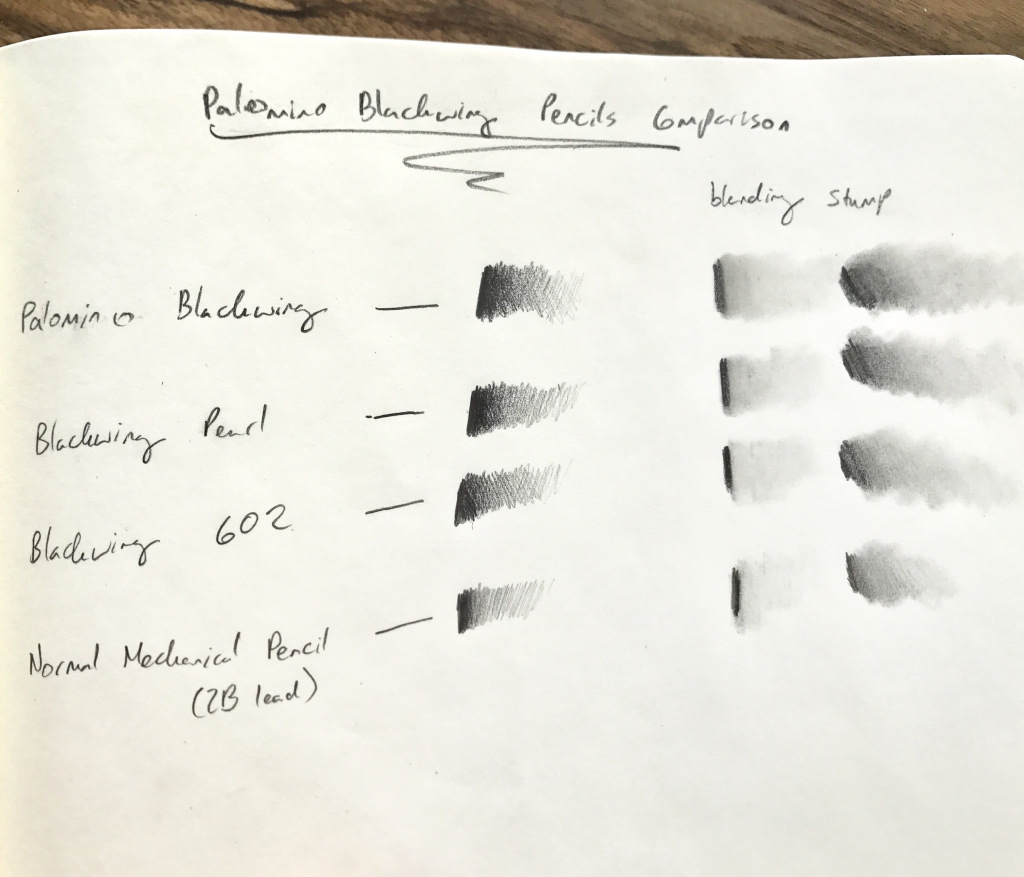 Palomino Blackwing Pencils Comparison
blending stump
Palomino Blackwing
Blackwing Pearl
Blackwing 602
Normal Mechanical Pencil
(2B lead)